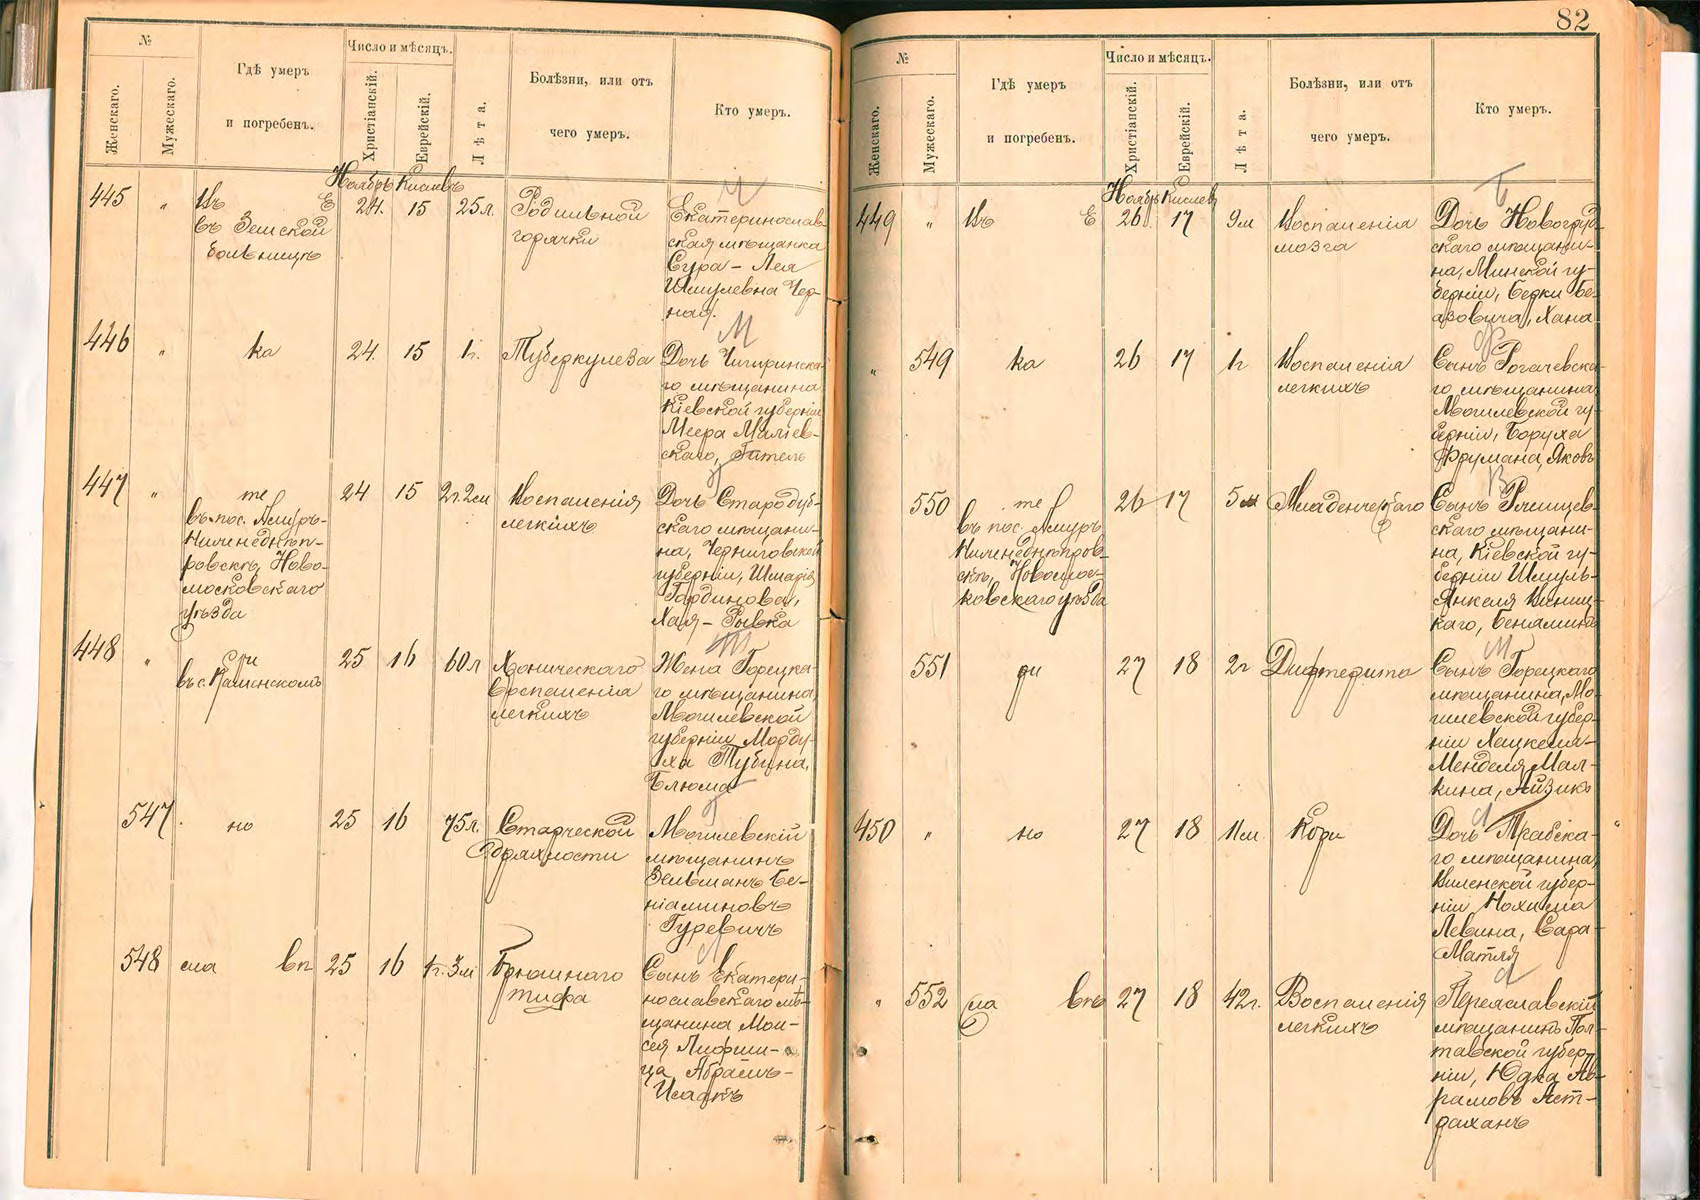 №
Женскаго.
Мужескаго.
Гдѣ умеръ
и погребенъ.
Число и мѣсяцъ.
Христіанскій.
Еврейскій.
Лѣта.
Болѣзни, или отъ
чего умеръ.
Кто умеръ.
Ноябрь Кислевъ
445 " Въ Е
въ Земской
больницѣ
24. 15 25л.
Родильной
горячки
Екатеринослав-
ская мѣщанка
Сура-Лея
Шмулевна Чер-
ная.
446 " ка 24. 15 1г. Туберкулеза
Дочь Чигиринска-
го мѣщанина
Кіевской губерніи
Меера Маліев-
скаго, Гитель
447 " те
въ пос. Амуръ-
Нижнеднѣп-
ровскъ, Ново-
московскаго
уѣзда
24 15 2г.2м
Воспаленія
легкихъ
Дочь Стародуб-
скаго мѣщани-
на, Черниговской
губерніи, Шмарія
Гординова,
Хая-Рывка
448 " ри
въ с. Каменскомъ
25 16 60л
Хроническаго
воспаленія
легкихъ
Жена Горецка-
го мѣщанина,
Могилевской
губерніи Морду-
ха Тубина,
Блюма
547 но 25 16 75л.
Старческой
дряхлости
Могилевскій
мѣщанинъ
Зельманъ Бе-
ніаминовъ
Гуревичъ
548 сла вп 25 16 1г.3м
Брюшнаго
тифа
Сынъ Екатери-
нославскаго мѣ-
щанина Мои-
сея Лифши-
ца Абрамъ-
Исаакъ
82
№
Женскаго.
Мужескаго.
Гдѣ умеръ
и погребенъ.
Число и мѣсяцъ.
Христіанскій.
Еврейскій.
Лѣта.
Болѣзни, или отъ
чего умеръ.
Кто умеръ.
Ноябрь Кислев
449 " Въ Е 26 17 9м
Воспаленія
мозга
Дочь Новогруд-
скаго мѣщани-
на, Минской гу-
берніи, Берки Бе-
азовича, Хана
" 549 ка 26 17 1г
Воспаленія
легкихъ
Сынъ Рогачевска-
го мѣщанина,
Могилевской гу-
берніи, Боруха
Фрумана, Яковъ
550 те
въ пос. Амуръ
Нижнеднѣпров-
скъ, Новомос-
ковскаго уѣзда
26 17 5м Младенческаго
Сынъ Ржищев-
скаго мѣщани-
на, Кіевской гу-
берніи Шмуль-
Янкеля Винниц-
каго, Беніаминъ
551 ри 27 18 2г Дифтерита
Сынъ Горецкаго
мѣщанина, Мо-
гилевской губер-
ніи Хацкеля-
Менделя Мал-
кина, Айзикъ
450 " но 27 18 11м Кори
Дочь Трабска-
го мѣщанина,
Виленской губер-
ніи Нохима
Левина, Сара-
Матля
" 552 сла впъ 27 18 42г.
Воспаленія
легкихъ
Переяславскій
мѣщанинъ Пол-
тавской губер-
ніи, Юдка Ав-
рамовъ Аст-
раханъ